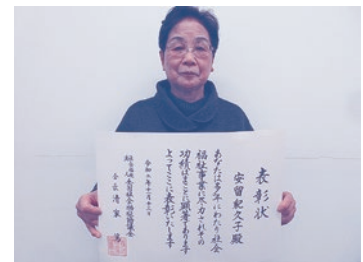 表彰状
安留紀久子殿
あなたは多年にわたり社会
福祉事業に尽力されその
功績はまことに顕著であります
よってここに表彰いたします
令和二年十一月十三日
全国社会福祉協議会
会長 清家 篤